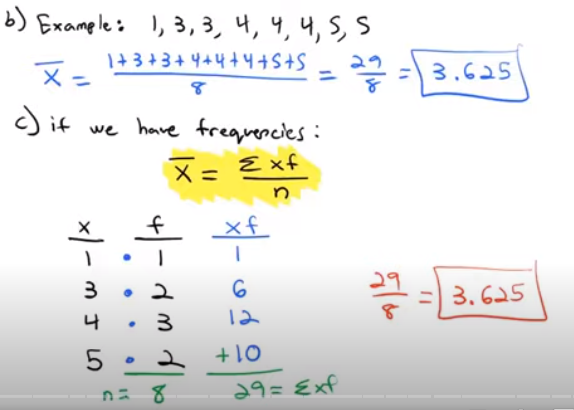 b) Example: 1, 3, 3, 4, 4, 4, 5, 5
x̄ = 1+3+3+4+4+4+5+5 / 8 = 29/8 = 3.625
c) if we have frequencies:
x̄ = Σxf / n
x f xf
1 • 1 1
3 • 2 6
4 • 3 12
5 • 2 +10
n= 8 29= Σxf
29/8 = 3.625